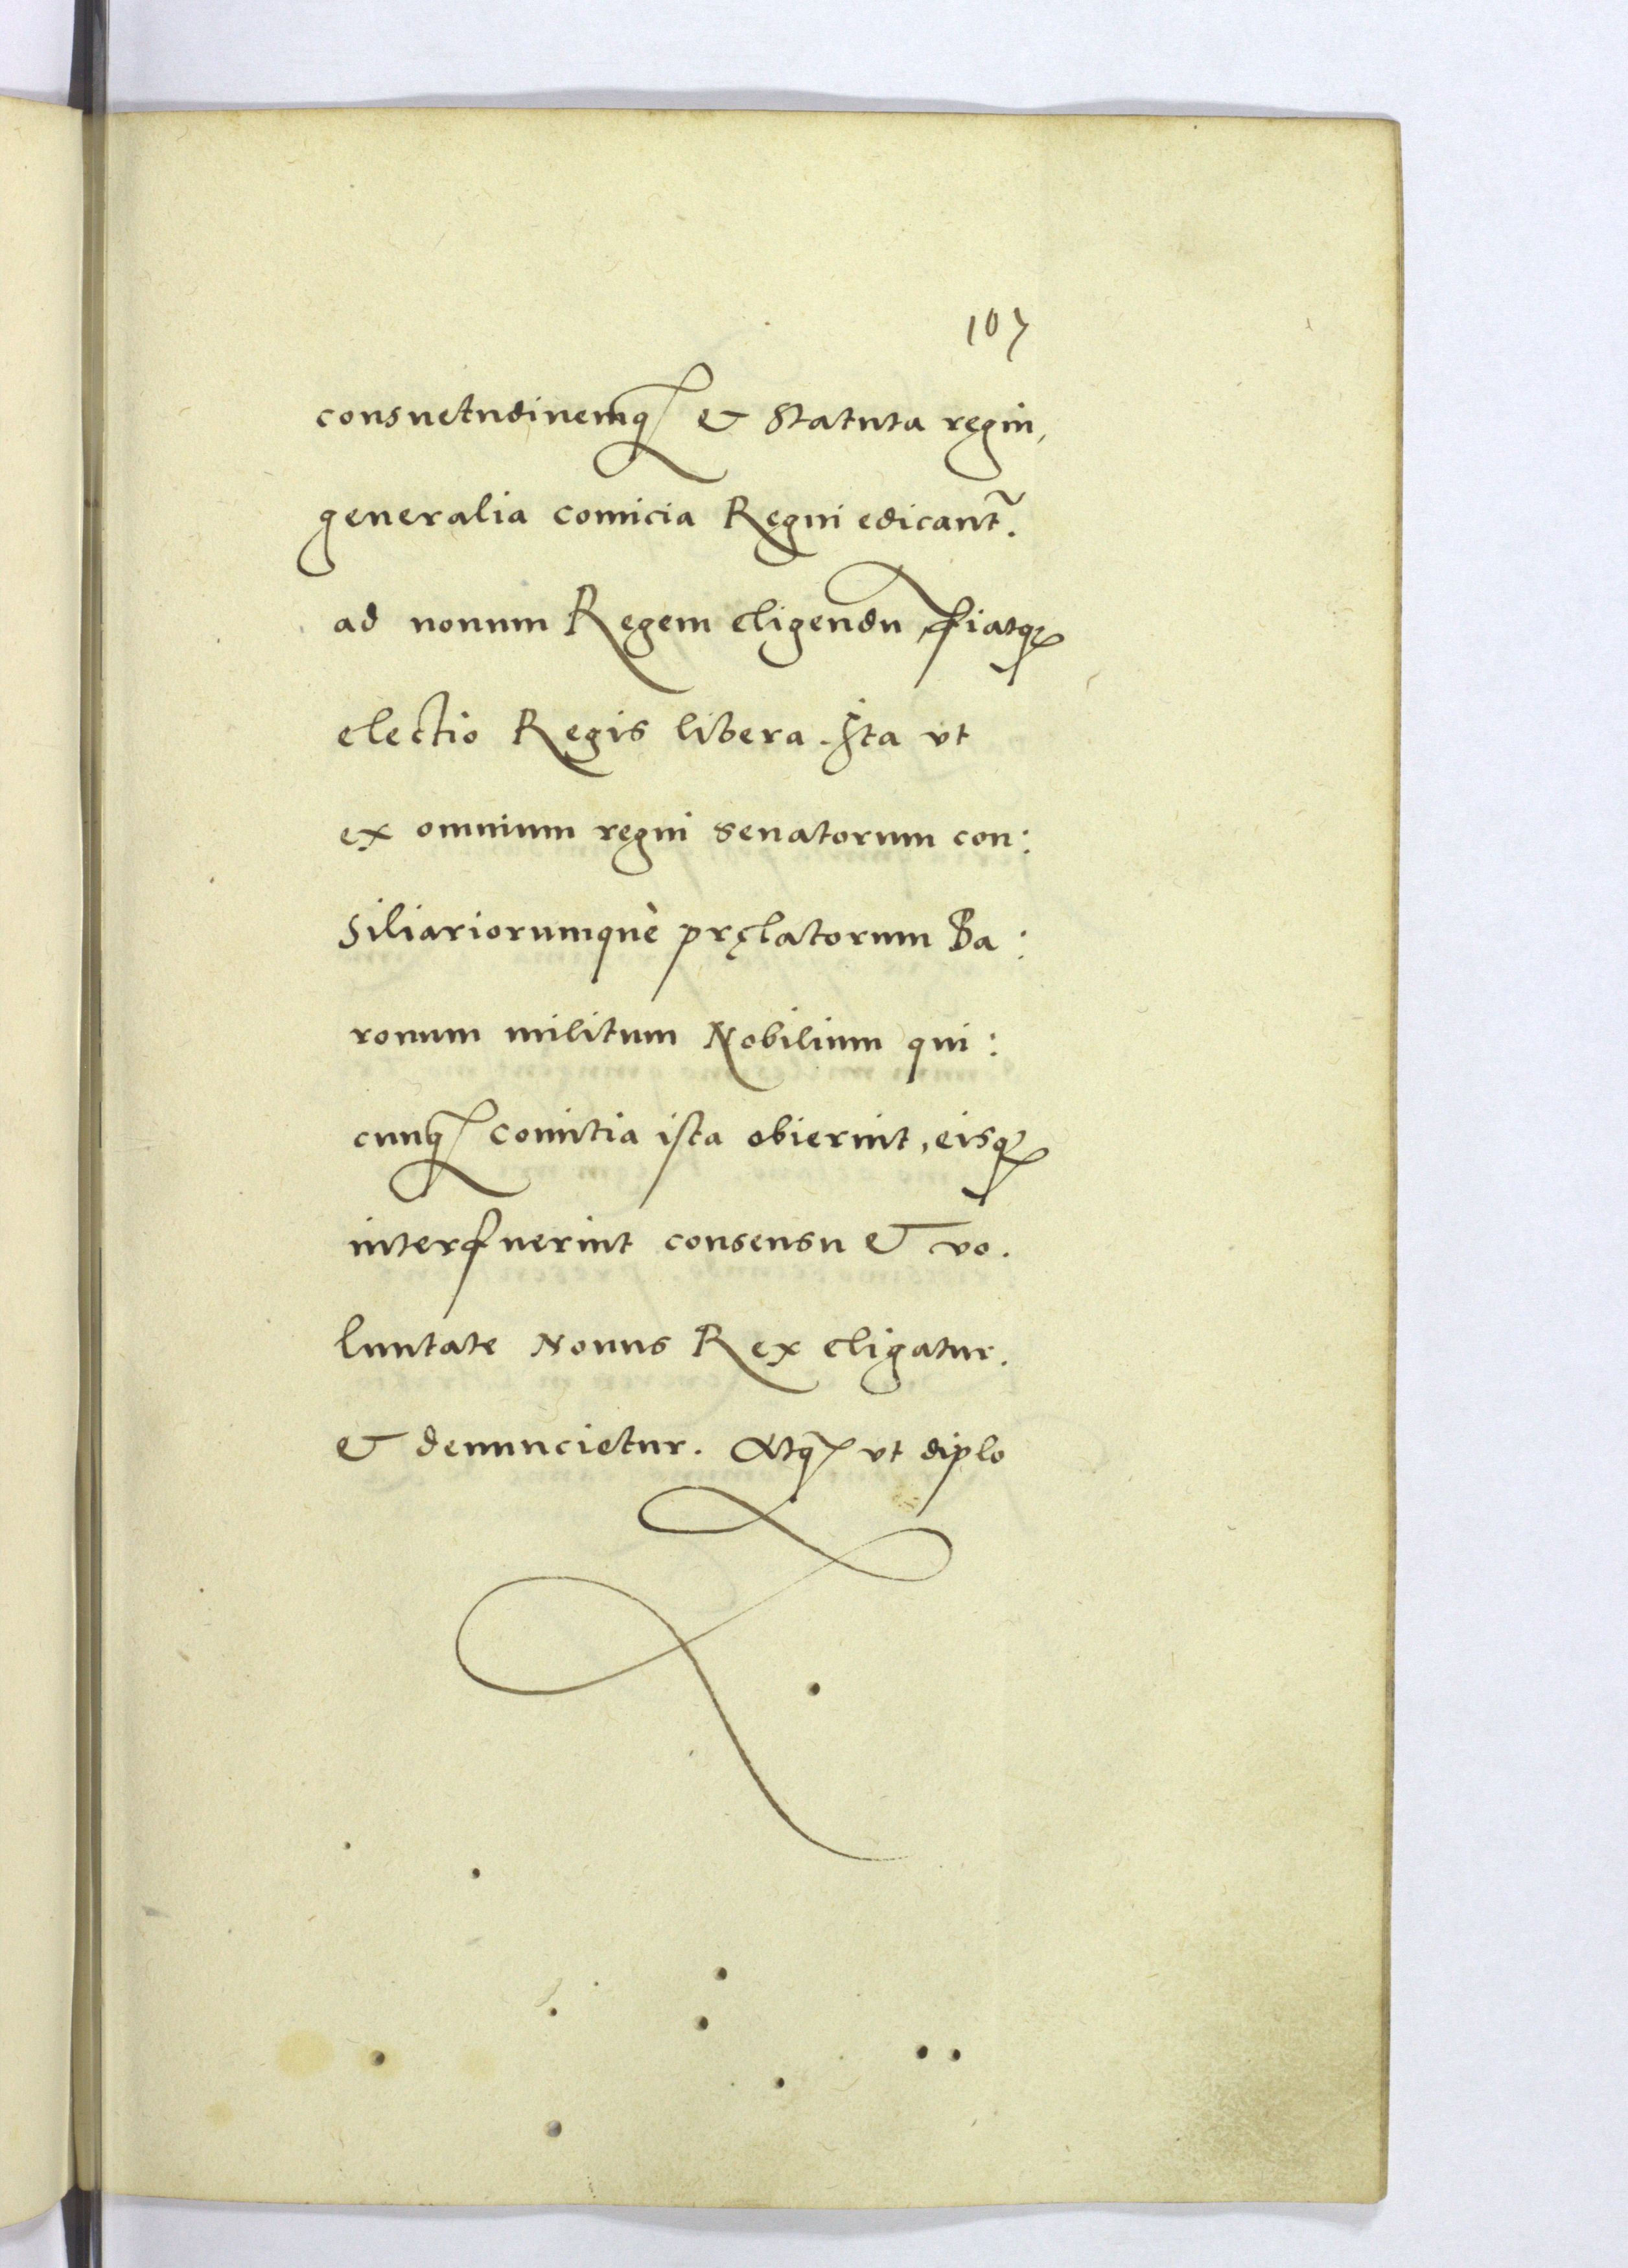 107
consuetudinemq₃ & Statuta regni,
generalia comicia Regni edicant᷑.
ad nouum Regem eligendũ, fiatq₃
electio Regis libera. Ita vt
ex omnium regni senatorum con:
siliariorumquè pręlatorum Ba:
ronum militum Nobilium qui:
cunq₃ comitia ista obierint, eisq₃
interfuerint consensu & vo.
luntate Nouus Rex eligatur.
& denuncietur. Atq₃ vt diplo